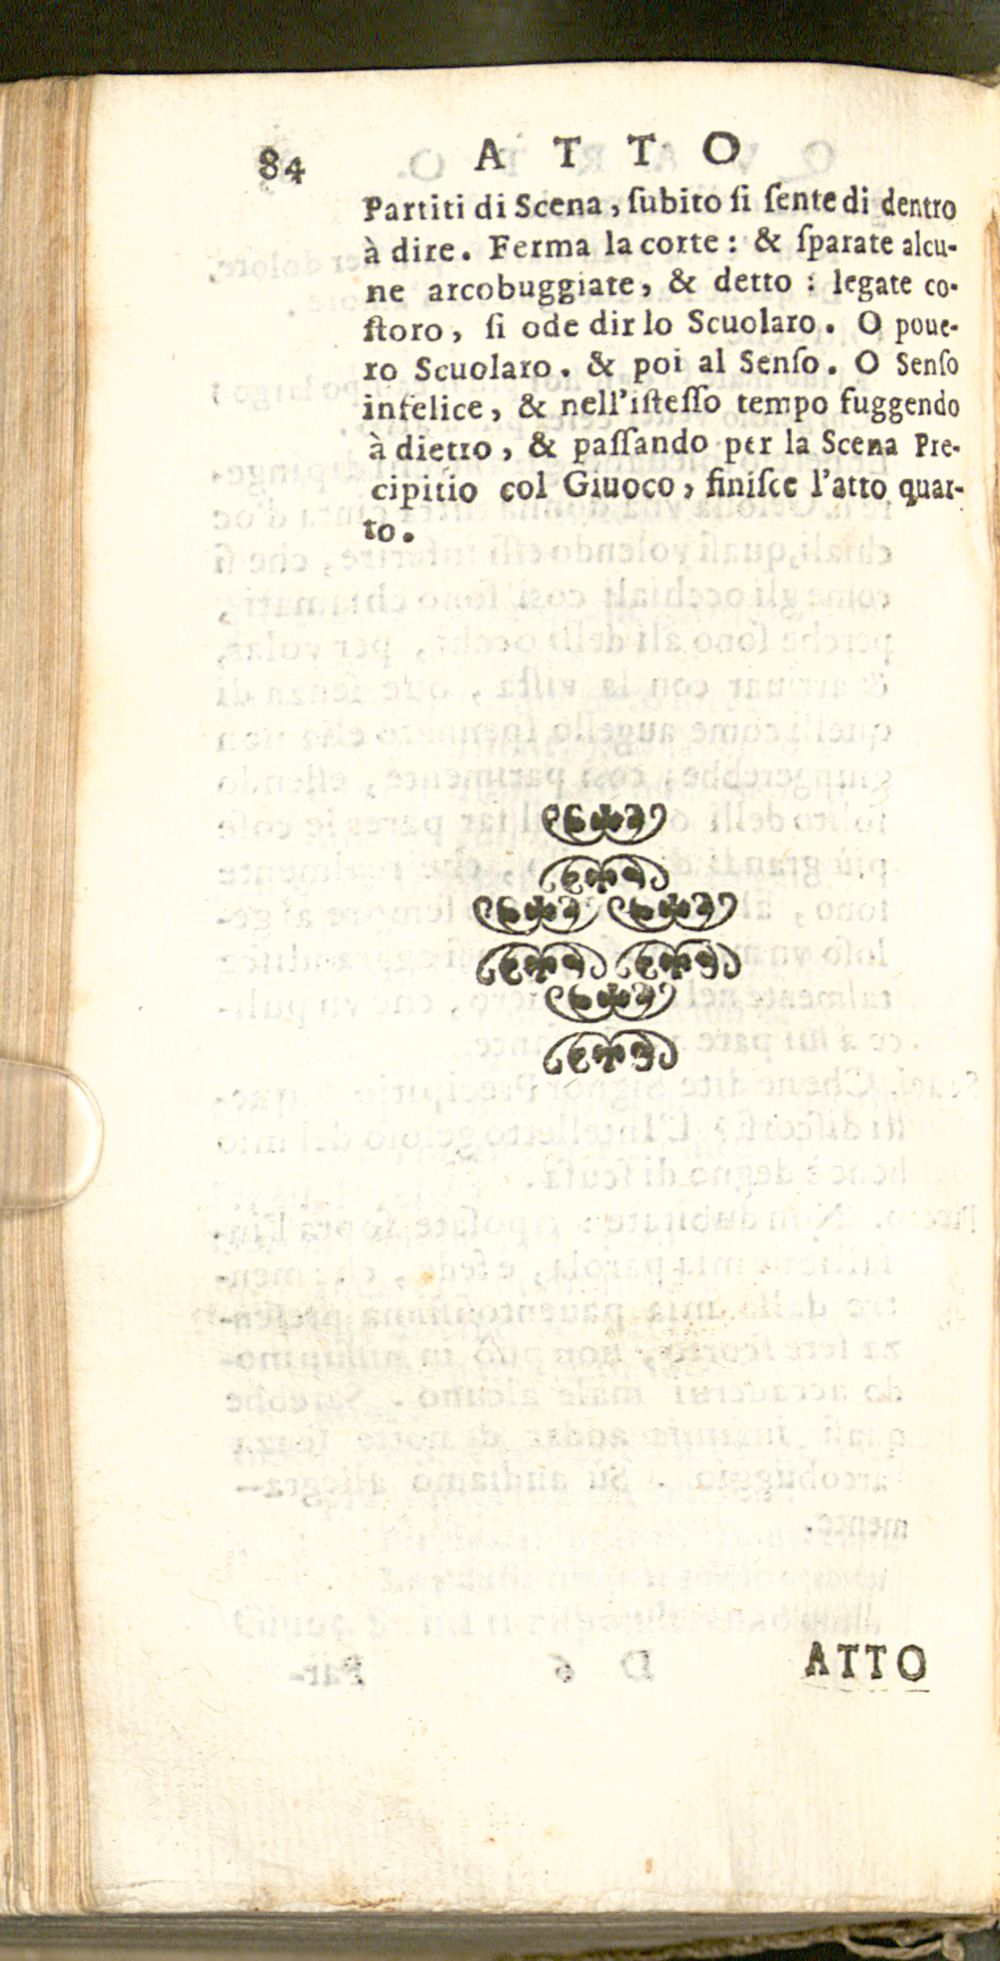 84 ATTO
Partiti di Scena, ſubito ſi ſente di dentro
à dire. Ferma la corte: & ſparate alcu-
ne arcobuggiate, & detto : legate co-
ſtoro, ſi ode dir lo Scuolaro. O poue-
ro Scuolaro. & poi al Senſo. O Senſo
infelice, & nell'iſteſſo tempo fuggendo
à dietro, & paſſando per la Scena Pre-
cipitio col Giuoco, finiſce l'atto quar-
to.
ATTO